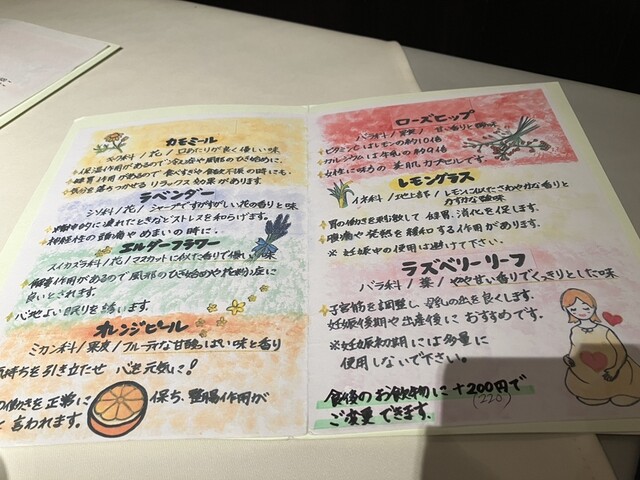 カモミール
キク科/花/口あたりが良く優しい味
保温作用があるので冷え症や風邪のひき始めに。
健胃作用があるので食べすぎや食欲不振の時にも。
気分を落ちつかせるリラックス効果があります。
ラベンダー
シソ科/花/シャープですがすがしい花の香りと味
精神的に疲れたときなどストレスを和らげます。
神経性の頭痛やめまいの時に。
エルダーフラワー
スイカズラ科/花/マスカットに似た香りで優しい味
解毒作用があるので風邪のひき始めや花粉症に
良いとされます。
心地よい眠りを誘います。
オレンジピール
ミカン科/果皮/フルーティな甘酸っぱい味と香り
気持ちを引き立たせ 心を元気に!
の働きを正常に保ち、整腸作用が
と言われます。
ローズヒップ
バラ科/果実/甘い香りと酸味
ビタミンCはレモンの約10倍
カルシウムは牛乳の約9倍
女性に味方の美肌カプセルです
レモングラス
イネ科/地上部/レモンに似たさわやかな香りと
かすかな酸味
胃の働きを刺激して健胃、消化を促します。
腹痛や発熱を緩和する作用があります。
※妊娠中の使用は避けて下さい。
ラズベリーリーフ
バラ科/葉/やや甘い香りでくっきりとした味
子宮筋を調整し、母乳の出を良くします。
妊娠後期や出産後におすすめです。
※妊娠初期には多量に
使用しないで下さい。
食後のお飲物に+200円で
(220)
ご変更できます。